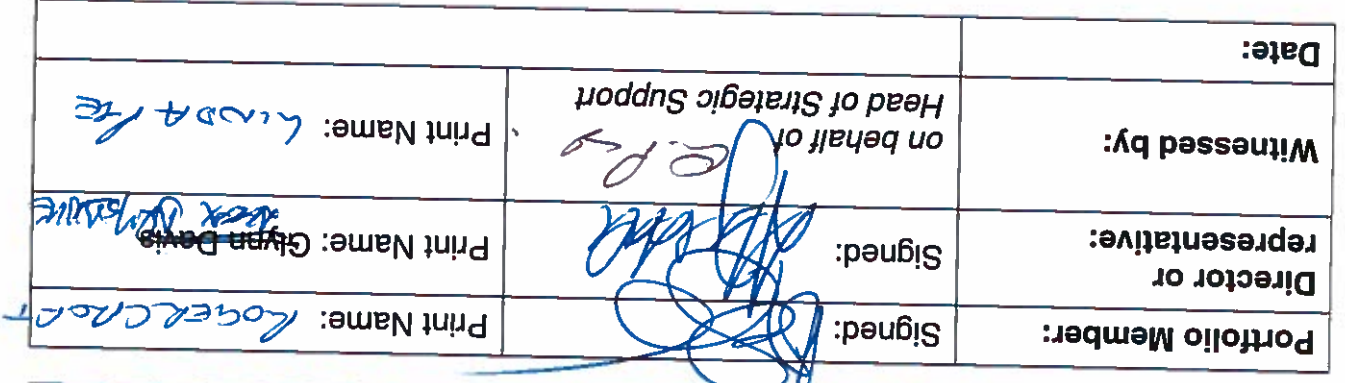 Portfolio Member: Signed: Print Name: ROGER CROFT
Director or
representative: Signed: Print Name: Glynn Davis
Witnessed by: on behalf of
Head of Strategic Support Print Name: LINDA PYE
Date: